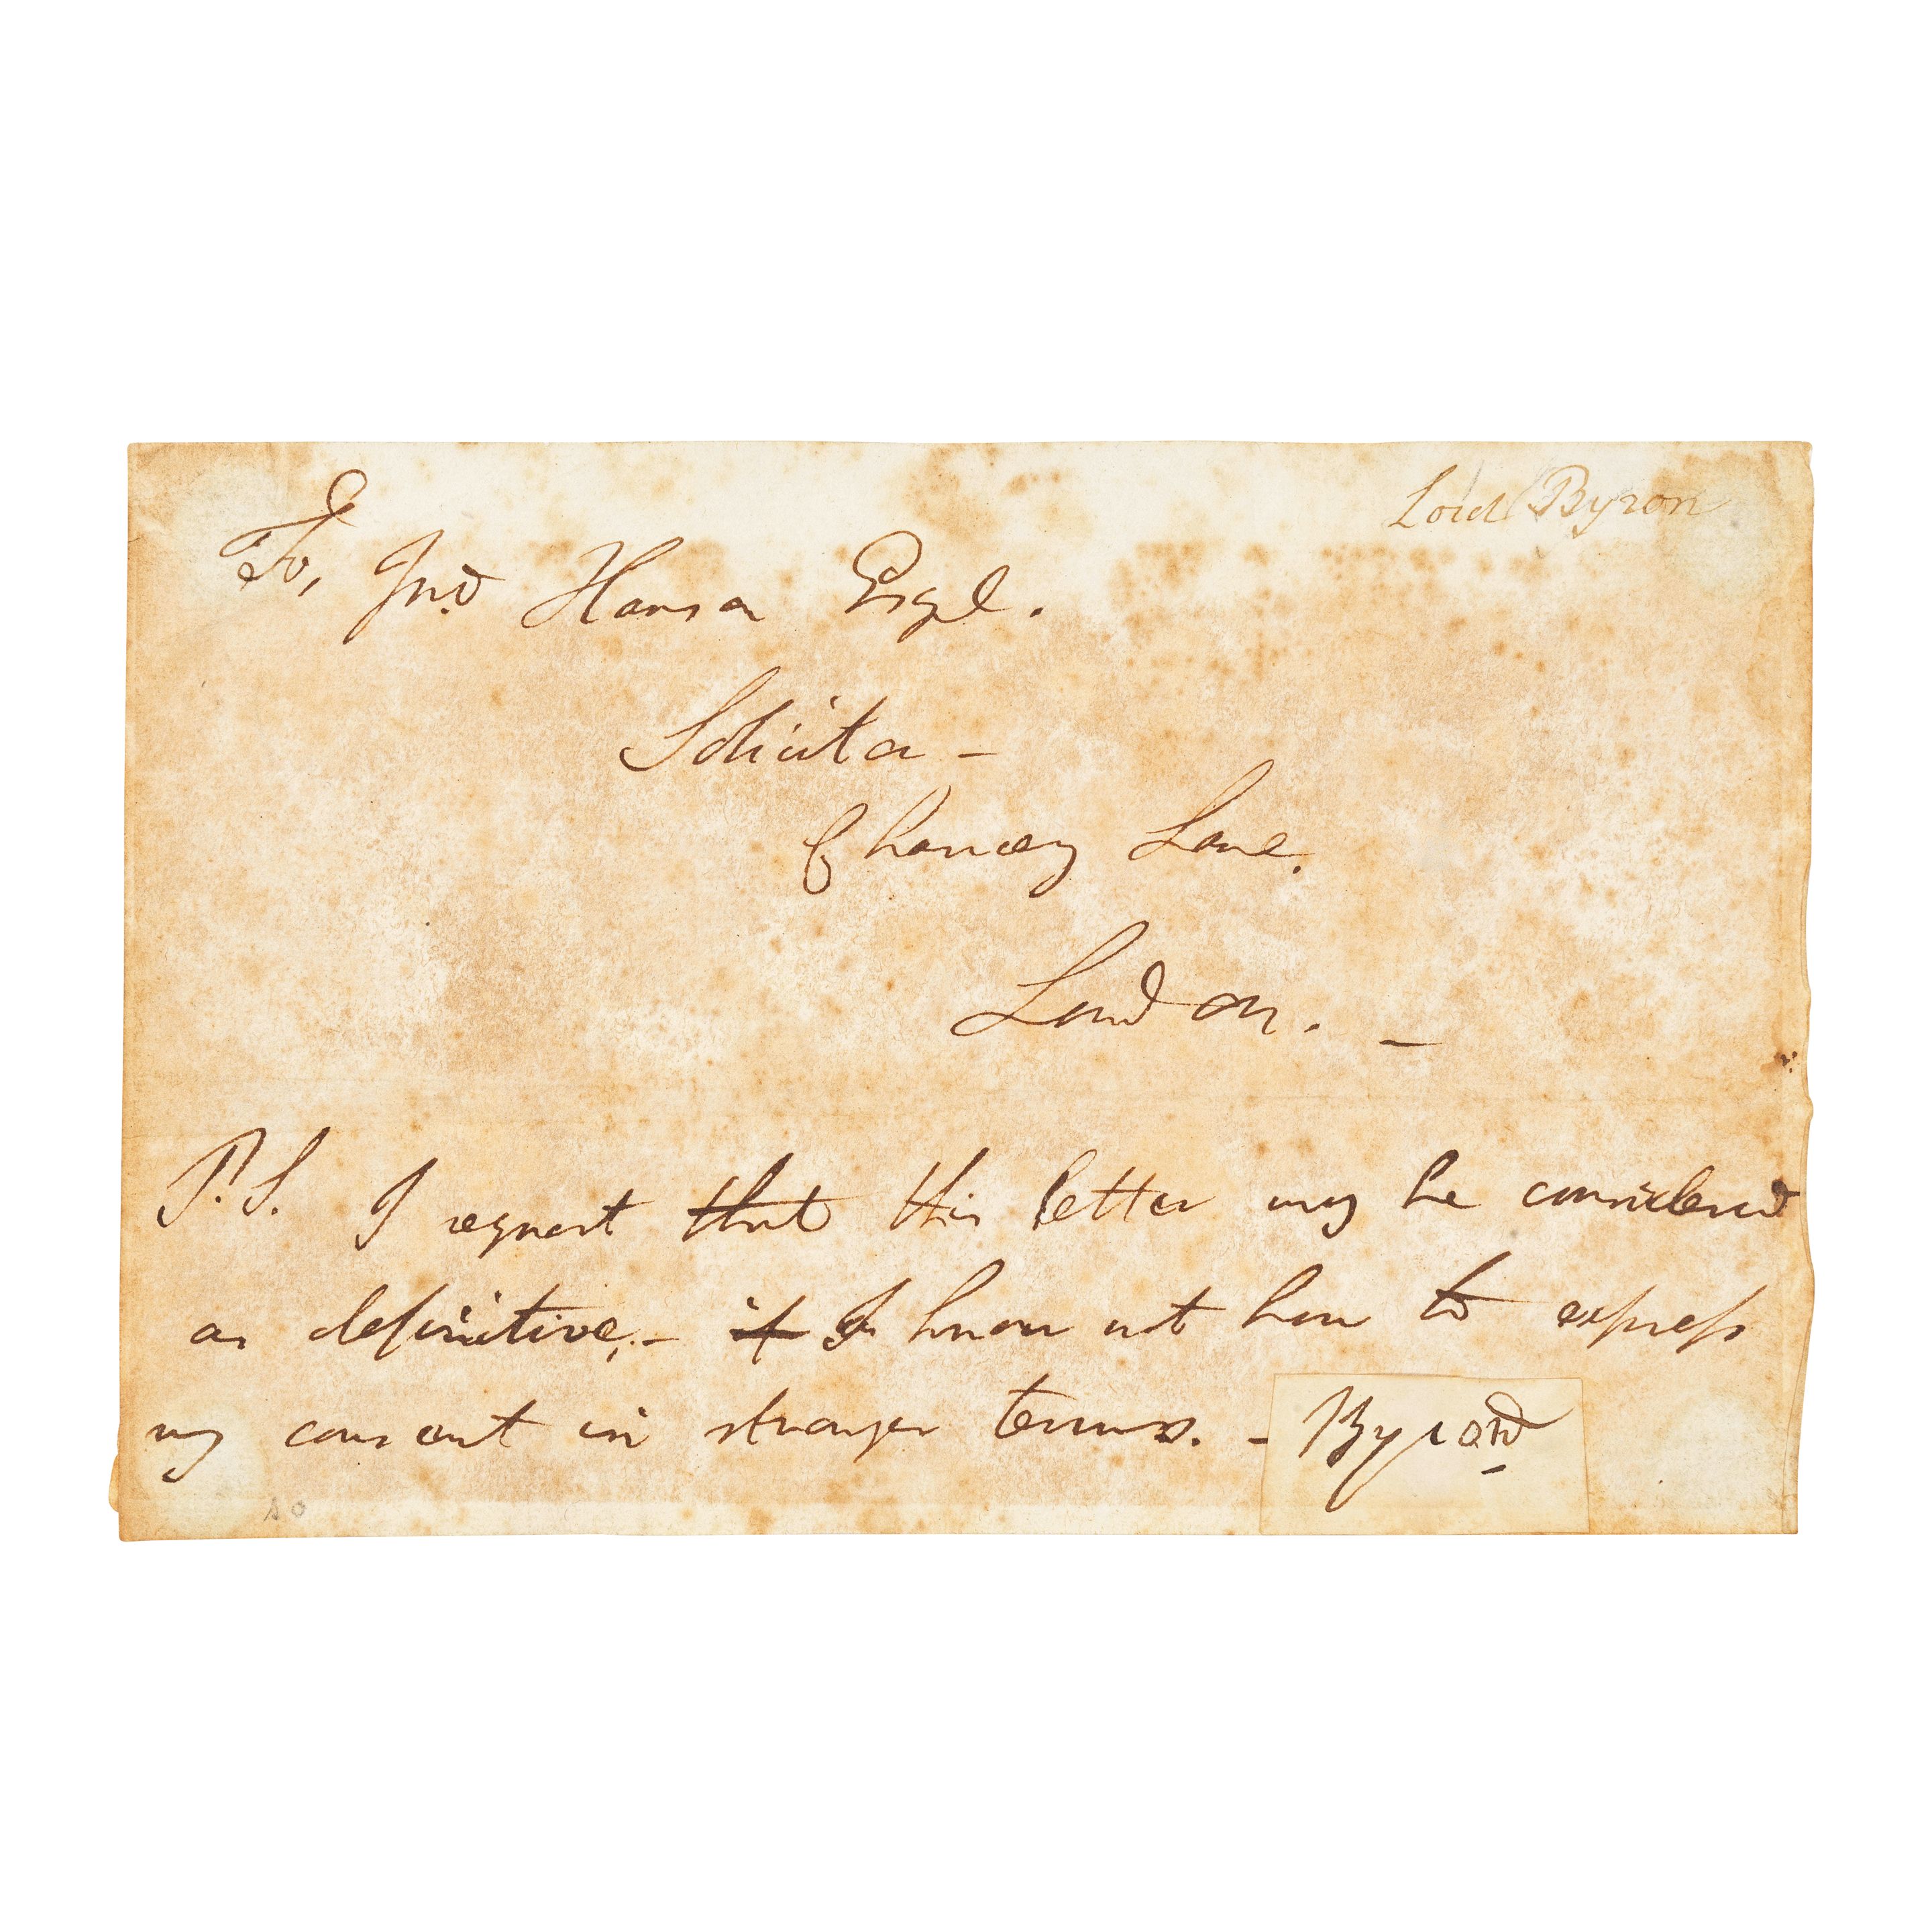 Lord Byron
To, Jno. Hanson Esqre.
Solicitor -
Chancery Lane.
London. -
P.S. I request that this letter may be considered
as definitive, - if I know not how to express
my consent in stronger terms. - Byron